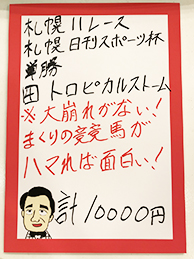 札幌11レース
札幌日刊スポーツ杯
単勝
田トロピカルストーム
※大崩れがない!
まくりの競走馬が
ハマれば面白い!
計10000円